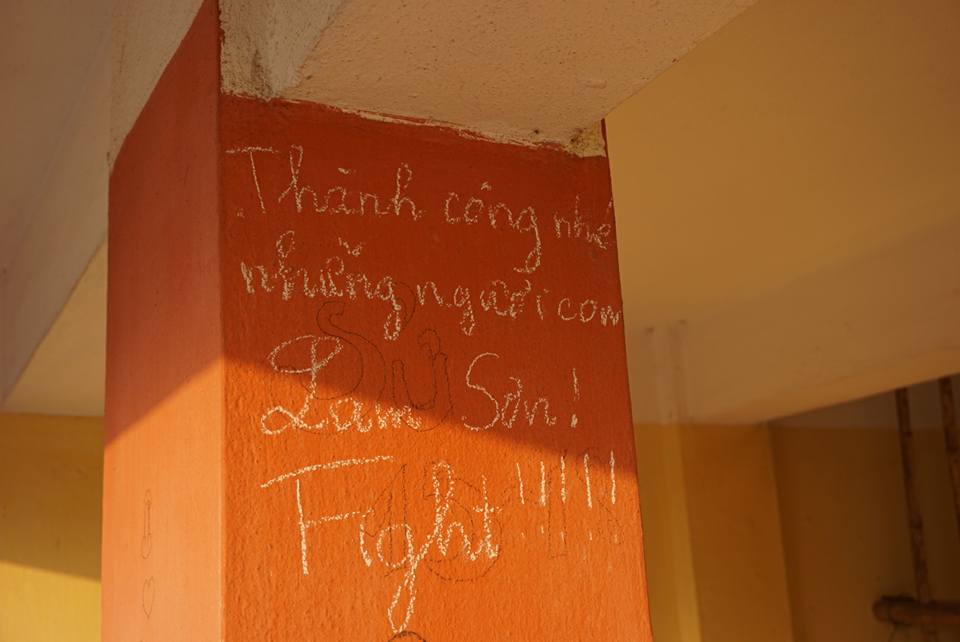 Thành công nhé
những người con
Lam Sơn!
Fight!!!!!
Sử